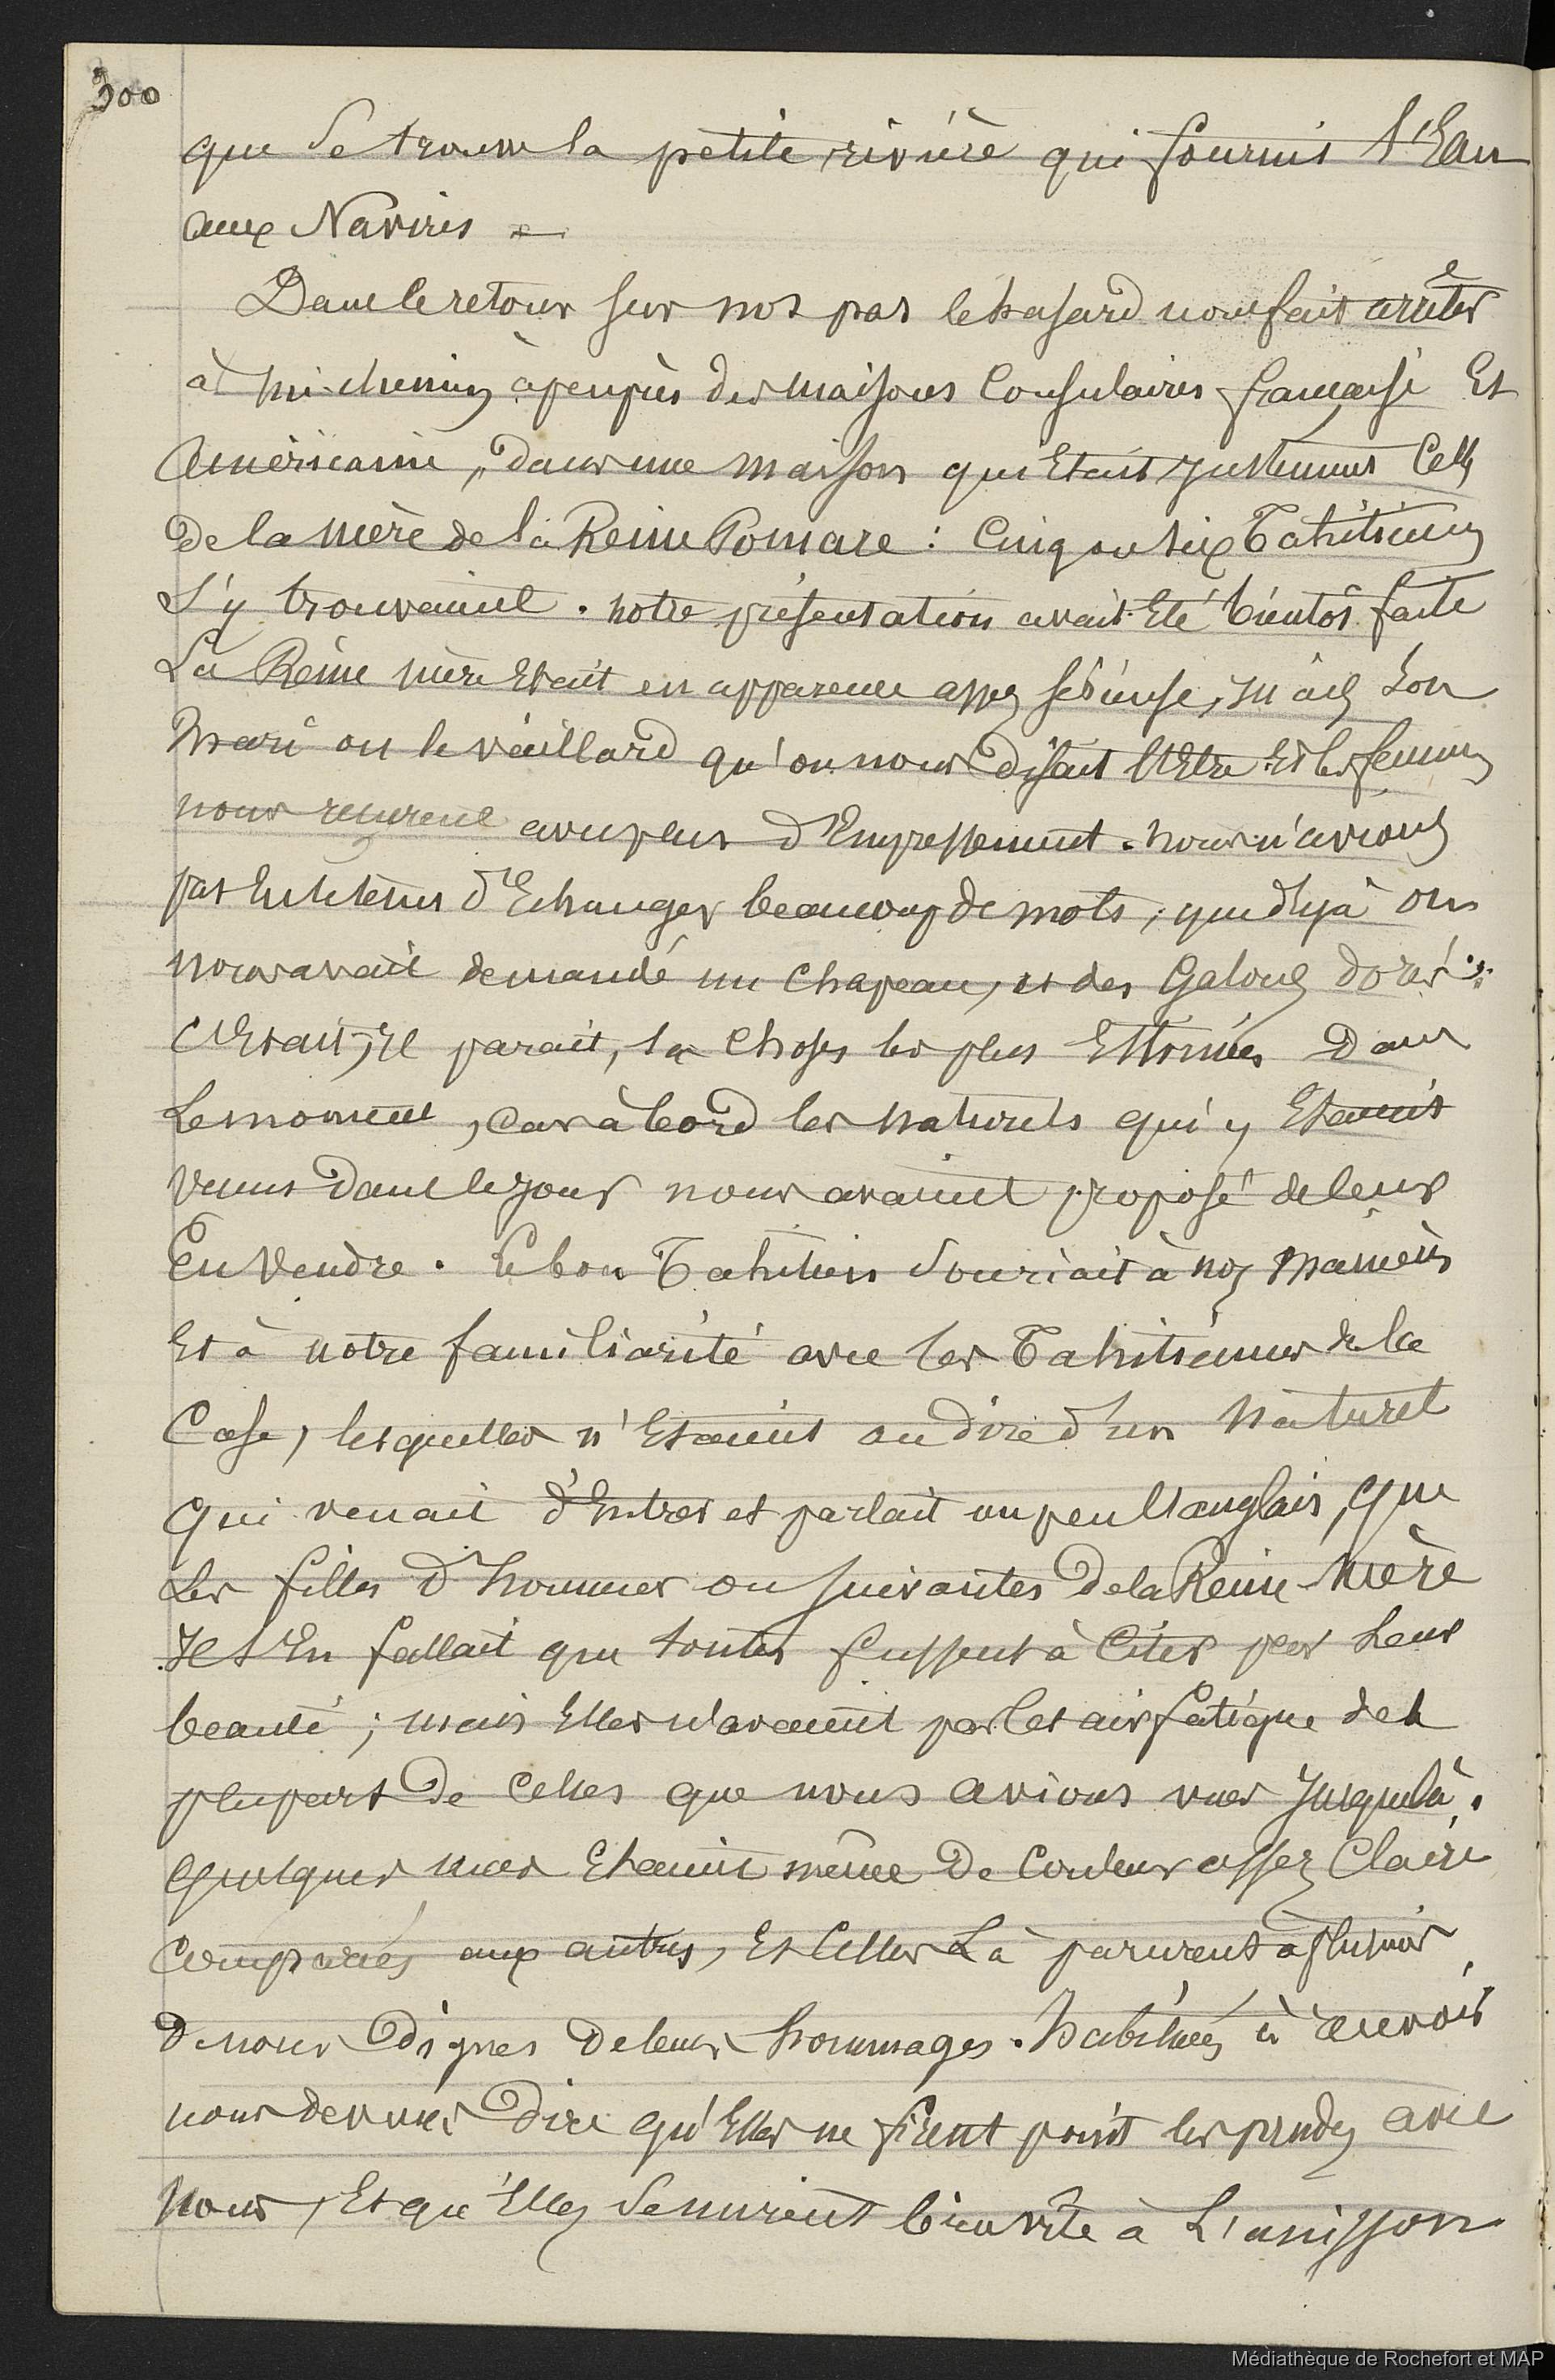 300
que se trouve la petite rivière qui fournit l'Eau
aux Navires —
Dans le retour sur nos pas le hasard nous fait arrêter
à mi-chemin à peu près des maisons Consulaires française Et
Américaine, dans une maison qui Etait justement Celle
de la mère de la Reine Pomare : Cinq ou six Tahitiennes
s'y trouvaient . notre présentation avait Eté bientôt faite
La Reine mère Etait en apparence assez sérieuse, mais son
mari ou le vieillard qu'on nous disait l'Etre Et les femmes
nous reçurent avec plus d'Empressement . nous n'avions
pas Eu le tems d'Echanger beaucoup de mots, que déjà on
nous avait demandé un Chapeau, et des Galons dorés :
C'Etait, Il parait, la Choses les plus Estimées Dans
le moment, car à bord les naturels qui y Etaient
venus dans le jour nous avaient proposé de leur
En Vendre . Le bon Tahitien souriait à nos manières
Et à notre familiarité avec les Tahitiennes de la
Case, lesquelles n'Etaient au dire d'un naturel
qui venait d'Entrer et parlait un peu l'anglais, que
Les filles d'honneur ou suivantes De la Reine-mère
Il s'En fallait que toutes fussent à Citer par Leur
beauté ; mais Elles n'avaient pas les air fatigue de la
plupart De Celles que nous avions vues Jusque là .
quelques unes Etaient même De Couleur assez Claire
comparées aux autres, Et Celles Là parurent à plusieurs
De nous Dignes De leurs hommages . habituées à recevoir
nous devons Dire qu'Elles ne firent point les prudes avec
Nous, Et qu'Elles se mirent bien vite à L'unisson
Médiathèque de Rochefort et MAP